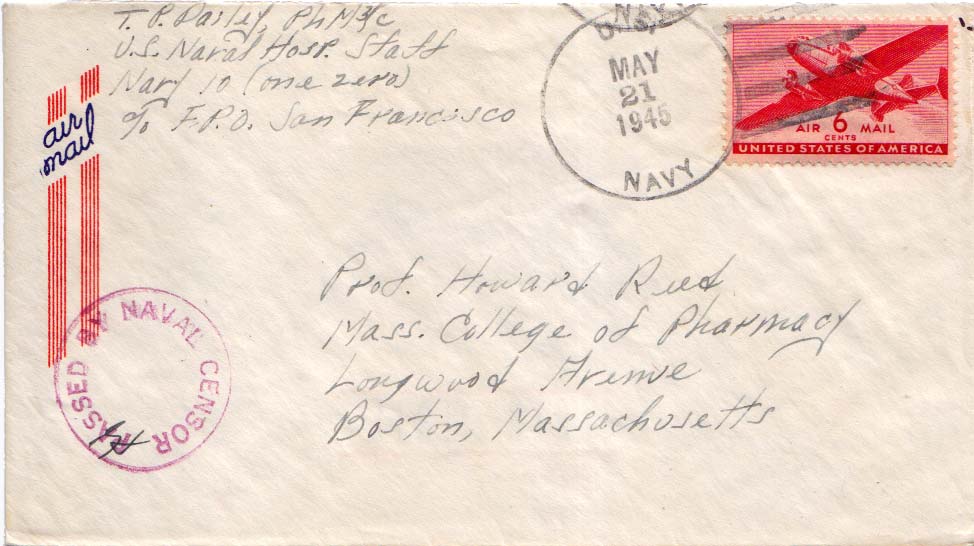 T. P. Dailey, Ph M 3/c
U.S. Naval Hosp. Staff
Navy 10 (one zero)
c/o F.P.O. San Francisco
air
mail
NAVY
U.S.
MAY
21
1945
NAVY
AIR 6 MAIL
CENTS
UNITED STATES OF AMERICA
Prof. Howard Reed
Mass. College of Pharmacy
Longwood Avenue
Boston, Massachusetts
PASSED BY NAVAL CENSOR